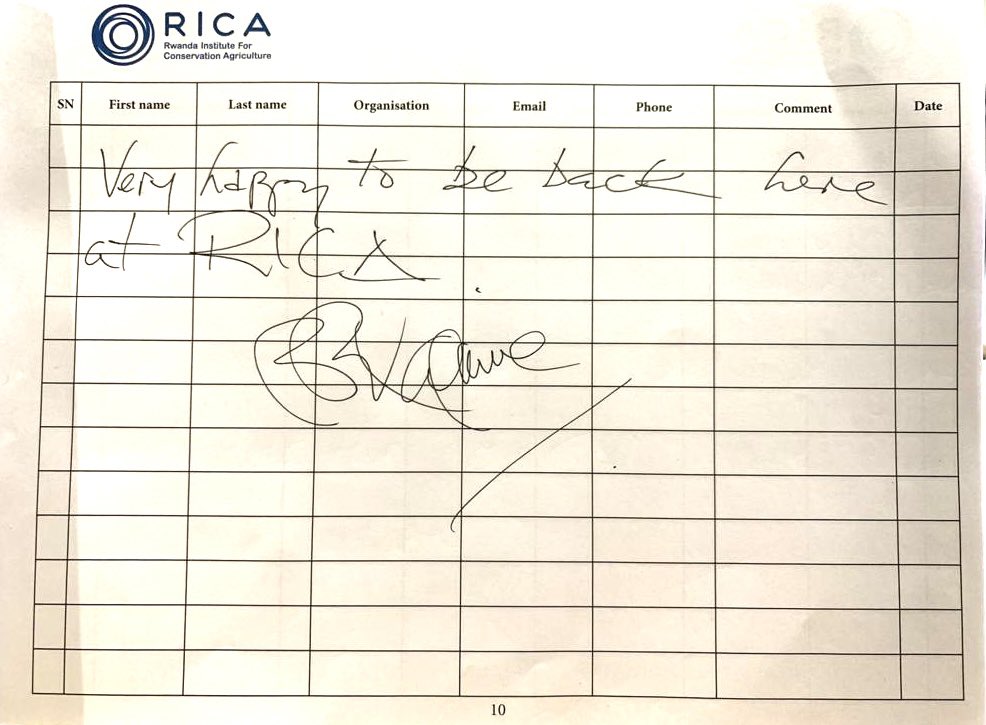 RICA
Rwanda Institute For
Conservation Agriculture
SN First name Last name Organisation Email Phone Comment Date
Very happy to be back here
at RICA.
10